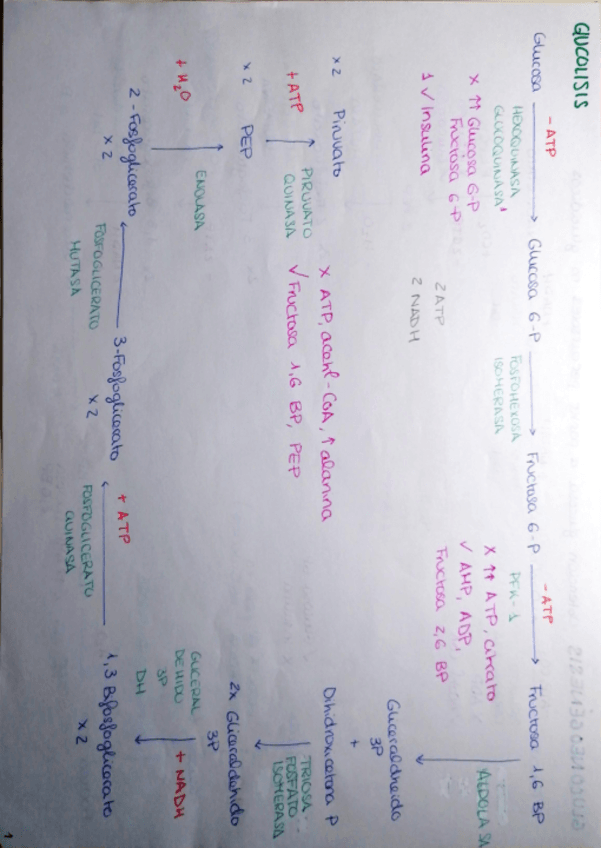 GLUCOLISIS
Glucosa
- ATP
HEXOQUINASA
GLUCOQUINASA¹
X ↑↑ Glucosa 6-P
Fructosa 6-P
1 √ Insulina
Glucosa 6-P
FOSFOHEXOSA
ISOMERASA
Fructosa 6-P
- ATP
PFK-1
X ↑↑ ATP, citrato
√ AMP, ADP,
Fructosa 2,6 BP
Fructosa 1,6 BP
ALDOLASA
Gliceraldheido
3P
+
Dihidroxicetona P
TRIOSA
FOSFATO
ISOMERASA
2x Gliceraldehido
3P
GLICERAL
DEHIDO
3P
DH
+ NADH
1,3 Bifosfoglicerato
x2
+ ATP
FOSFOGLICERATO
QUINASA
3-Fosfoglicerato
x2
FOSFOGLICERATO
MUTASA
2-Fosfoglicerato
x2
+ H2O
ENOLASA
x2 PEP
+ ATP
PIRUVATO
QUINASA
x2 Piruvato
X ATP, acetil-CoA, ↑ alanina
√ Fructosa 1,6 BP, PEP
2 ATP
2 NADH
1